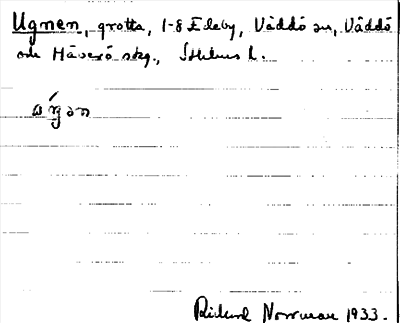 Ugnen, grotta, 1-8 Edeby, Väddö sn, Väddö
och Häverö skg., Sthlms l.
Rickard Norrman 1933.